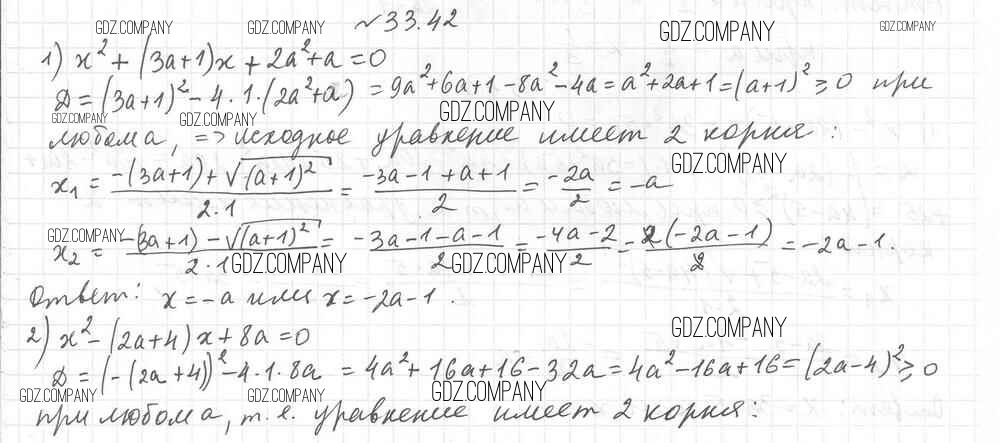 GDZ.COMPANY GDZ.COMPANY №33.42 GDZ.COMPANY GDZ.COMPANY
1) x² + (3a+1)x + 2a² + a = 0
D = (3a+1)² - 4·1·(2a²+a) = 9a² + 6a + 1 - 8a² - 4a = a² + 2a + 1 = (a+1)² ≥ 0 при
GDZ.COMPANY GDZ.COMPANY GDZ.COMPANY
любом a, => исходное уравнение имеет 2 корня:
GDZ.COMPANY
x₁ = (-(3a+1) + √(a+1)²)/(2·1) = (-3a-1+a+1)/2 = -2a/2 = -a
GDZ.COMPANY
x₂ = (-(3a+1) - √(a+1)²)/(2·1) = (-3a-1-a-1)/2 = (-4a-2)/2 = 2(-2a-1)/2 = -2a-1.
GDZ.COMPANY GDZ.COMPANY
Ответ: x = -a или x = -2a-1.
GDZ.COMPANY
2) x² - (2a+4)x + 8a = 0
D = (-(2a+4))² - 4·1·8a = 4a² + 16a + 16 - 32a = 4a² - 16a + 16 = (2a-4)² ≥ 0
GDZ.COMPANY GDZ.COMPANY GDZ.COMPANY
при любом a, т.е. уравнение имеет 2 корня: